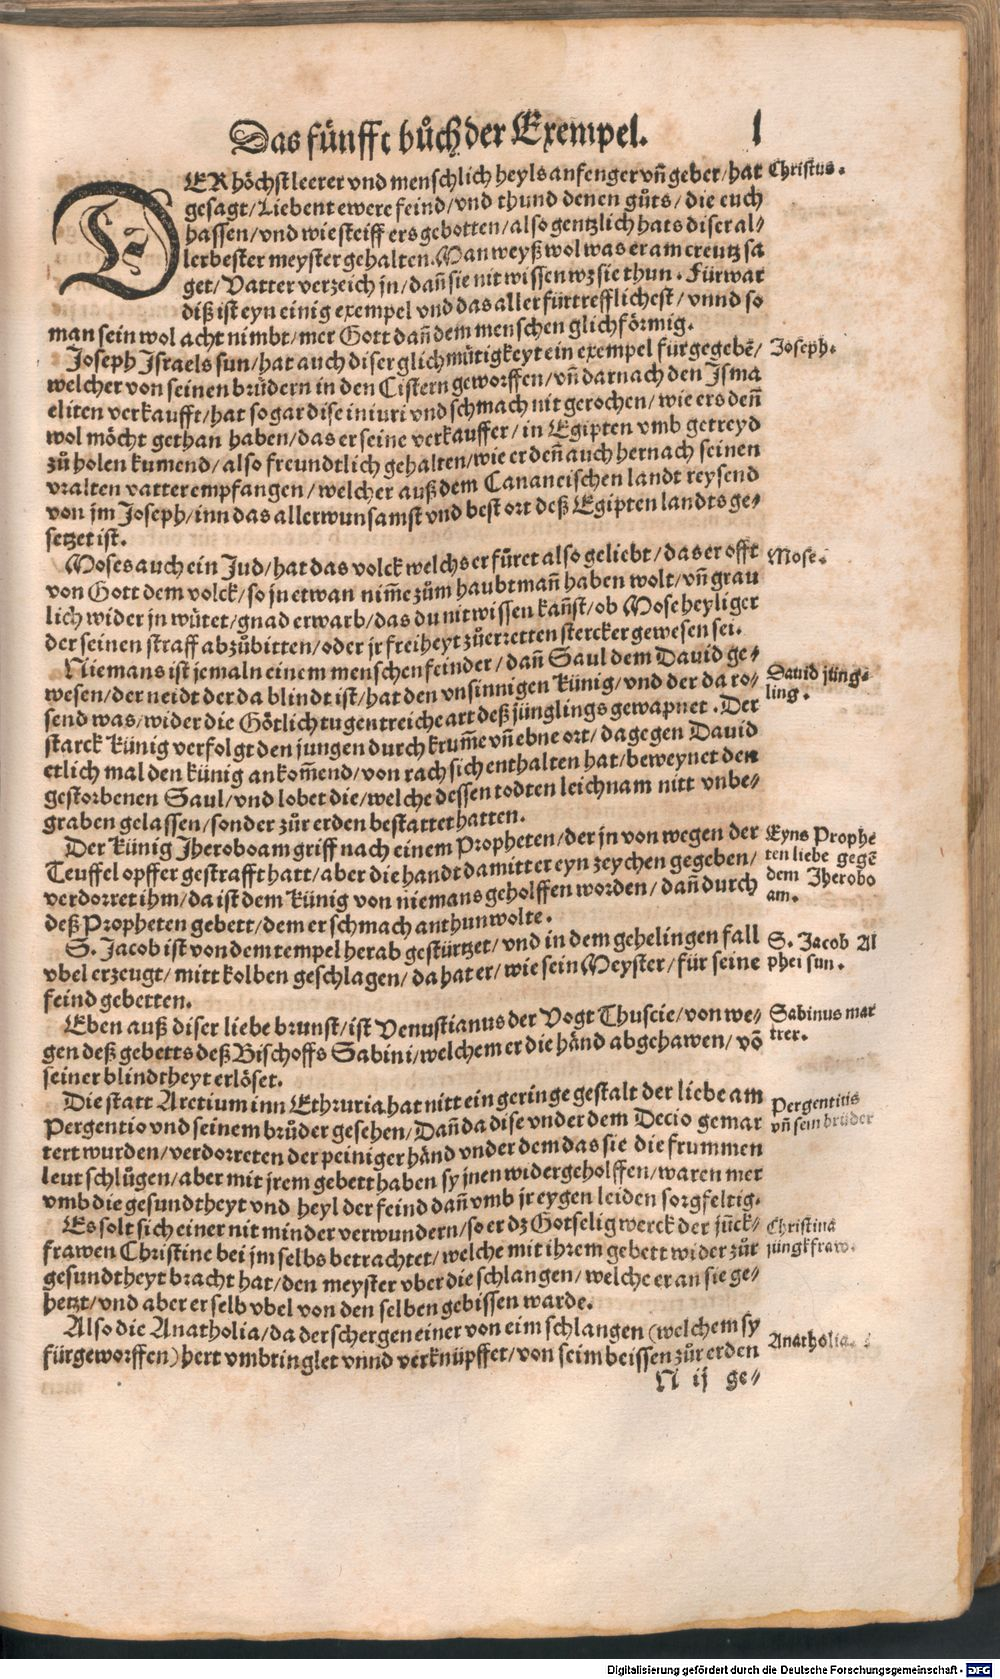 Das fünfft bůch der Exempel. l
DER höchst leerer vnd menschlich heyls anfenger vn̄ geber/ hat
Christus.
gesagt/ Liebent ewere feind/ vnd thund denen gůts/ die euch
hassen/ vnd wie steiff ers gebotten/ also gentzlich hats diser al⸗
lerbester meyster gehalten. Man weyß wol was er am creutz sa
get/ Vatter verzeich jn/ dan̄ sie nit wissen wz sie thun. Fürwar
diß ist eyn einig exempel vnd das aller fürtrefflichest/ vnnd so
man sein wol acht nimbt/ mer Gott dan̄ dem menschen glichförmig.
Joseph Israels sun/ hat auch diser glichmütigkeyt ein exempel fürgegebē/
Joseph.
welcher von seinen brüdern in den Cistern geworffen/ vn̄ darnach den Isma
eliten verkaufft/ hat so gar dise iniuri vnd schmach nit gerochen/ wie ers den̄
wol möcht gethan haben/ das er seine verkauffer/ in Egipten vmb getreyd
zů holen kumend/ also freundtlich gehalten/ wie er den̄ auch hernach seinen
vralten vatter empfangen/ welcher auß dem Cananeischen landt reysend
von jm Joseph/ inn das aller wunsamst vnd best ort deß Egipten landts ge⸗
setzet ist.
Moses auch ein Jud/ hat das volck welchs er füret also geliebt/ das er offt
Mose.
von Gott dem volck/ so jn etwan nim̄e zům haubtman̄ haben wolt/ vn̄ grau
lich wider jn wütet/ gnad erwarb/ das du nit wissen kan̄st/ ob Mose heyliger
der seinen straff abzůbitten/ oder jr freiheyt zů erretten stercker gewesen sei.
Niemans ist jemaln einem menschen feinder/ dan̄ Saul dem Dauid ge⸗
Dauid jüng⸗
ling.
wesen/ der neidt der da blindt ist/ hat den vnsinnigen künig/ vnd der da ro⸗
send was/ wider die Götlich tugentreiche art deß jünglings gewapnet. Der
starck künig verfolgt den jungen durch krum̄e vn̄ ebne ort/ dagegen Dauid
etlich mal den künig ankom̄end/ von rach sich enthalten hat/ beweynet den
gestorbenen Saul/ vnd lobet die/ welche dessen todten leichnam nitt vnbe⸗
graben gelassen/ sonder zůr erden bestattet hatten.
Der künig Jheroboam griff nach einem Propheten/ der jn von wegen der
Eyns Prophe
ten liebe gegē
dem Jherobo
am.
Teuffel opffer gestrafft hatt/ aber die handt da mitt er eyn zeychen gegeben/
verdorret ihm/ da ist dem künig von niemans geholffen worden/ dan̄ durch
deß Propheten gebett/ dem er schmach anthun wolte.
S. Jacob ist von dem tempel herab gestürtzet/ vnd in dem gehelingen fall
S. Jacob Al
phei sun.
vbel erzeugt/ mitt kolben geschlagen/ da hat er/ wie sein Meyster/ für seine
feind gebetten.
Eben auß diser liebe brunst/ ist Venustianus der Vogt Thuscie/ von we⸗
Sabinus mar
trer.
gen deß gebetts deß Bischoffs Sabini/ welchem er die händ abgehawen/ vō
seiner blindtheyt erlöset.
Die statt Aretium inn Ethruria hat nitt ein geringe gestalt der liebe am
Pergentius
vn̄ sein brüder
Pergentio vnd seinem brůder gesehen/ Dan̄ da dise vnder dem Decio gemar
tert wurden/ verdorreten der peiniger händ vnder dem das sie die frummen
leut schlůgen/ aber mit jrem gebett haben sy jnen wider geholffen/ waren mer
vmb die gesundtheyt vnd heyl der feind dan̄ vmb jr eygen leiden sorgfeltig.
Es solt sich einer nit minder verwundern/ so er dz Gotselig werck der jün̄ck⸗
Christina
jungkfraw.
frawen Christine bei jm selbs betrachtet/ welche mit ihrem gebett wider zůr
gesundtheyt bracht hat/ den meyster vber die schlangen/ welche er an sie ge⸗
hetzt/ vnd aber er selb vbel von den selben gebissen warde.
Also die Anatholia/ da der schergen einer von eim schlangen (welchem sy
Anatholia.
fürgeworffen) hert vmbringlet vnnd verknüpffet/ von seim beissen zůr erden
N ij ge⸗
Digitalisierung gefördert durch die Deutsche Forschungsgemeinschaft - DFG